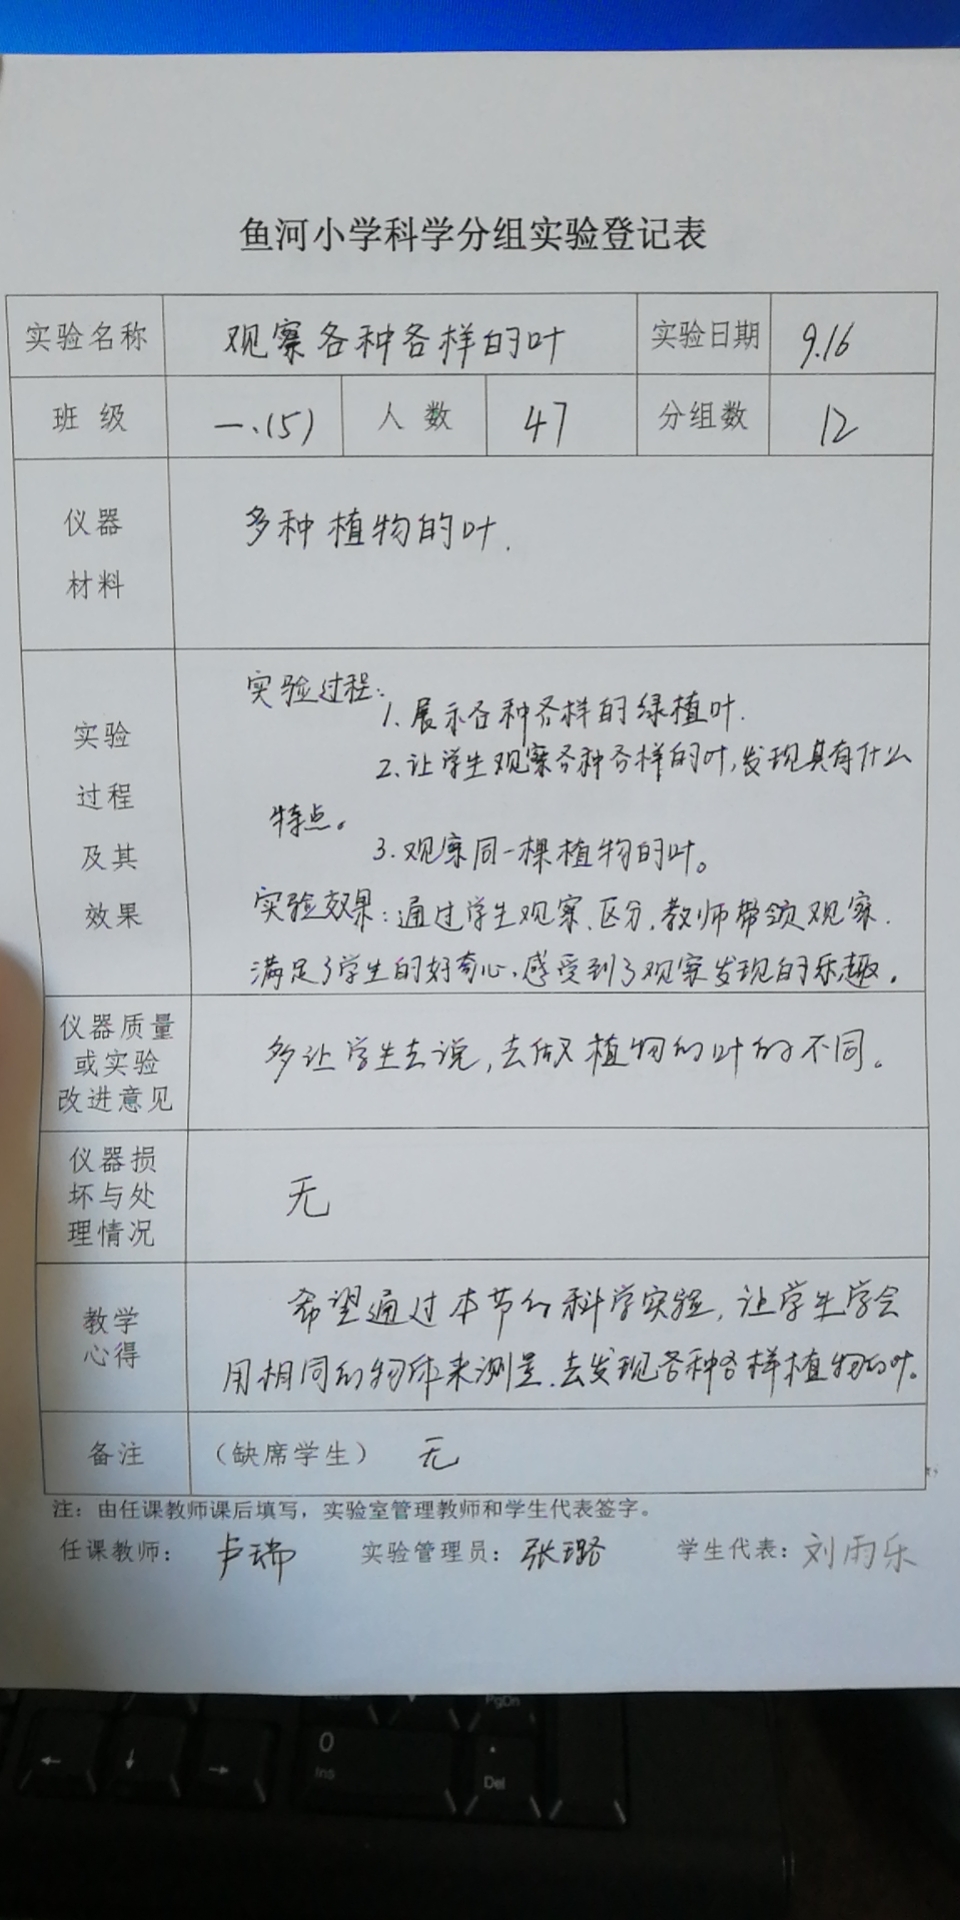 鱼河小学科学分组实验登记表
实验名称 观察各种各样的叶 实验日期 9.16
班 级 一.(5) 人 数 47 分组数 12
仪器
材料
多种植物的叶.
实验
过程
及其
效果
实验过程:
1.展示各种各样的绿植叶.
2.让学生观察各种各样的叶,发现具有什么
特点。
3.观察同一棵植物的叶。
实验效果:通过学生观察、区分,教师带领观察.
满足了学生的好奇心,感受到了观察发现的乐趣.
仪器质量
或实验
改进意见
多让学生去说,去做植物的叶的不同。
仪器损
坏与处
理情况
无
教学
心得
希望通过本节的科学实验,让学生学会
用相同的物体来测量.去发现各种各样植物的叶。
备注 (缺席学生) 无
注:由任课教师课后填写,实验室管理教师和学生代表签字。
任课教师: 卢瑞 实验管理员: 张璐 学生代表: 刘雨乐
PgDn
0
Ins
.
Del
← ↓ →